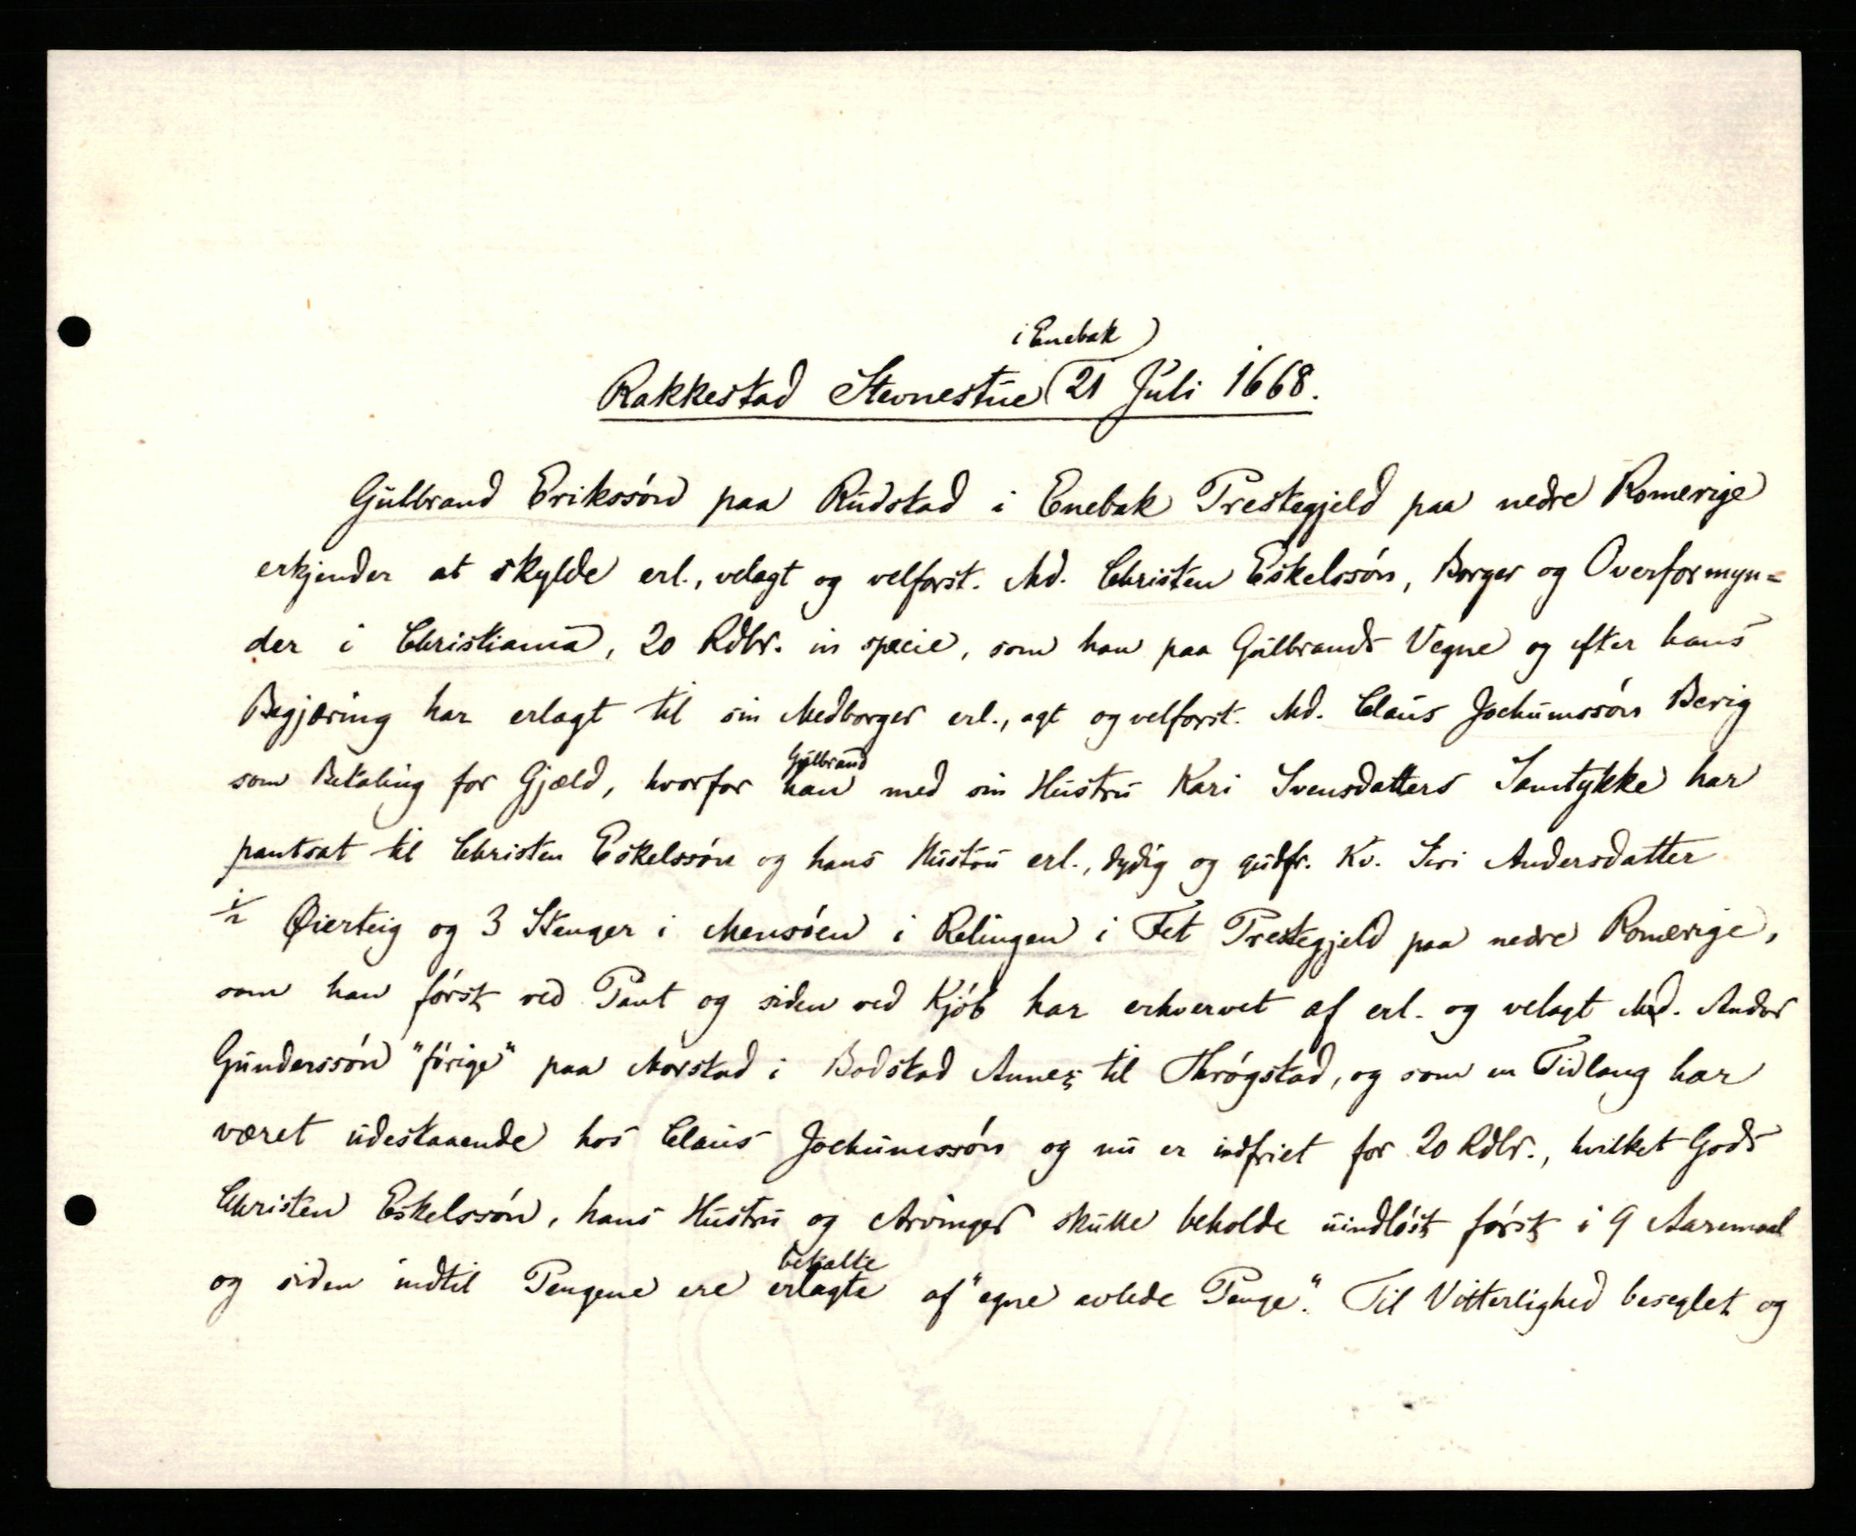 i Enebak)
Rakkestad Stevnestue ( 21 Juli 1668.
Gulbrand Erikssön paa Rudstad i Enebak Prestegjeld paa nedre Romerige
erkjender at skylde erl., velagt og velforst. Md. Christen Eskelssön, Borger og Overformyn=
der i Christiania, 20 Rdlr. in specie, som han paa Gulbrands Vegne og efter hans
Begjæring har erlagt til sin Medborger erl., agt og velforst. Md. Claus Jochumssön Berig
som Betaling for Gjæld, hvorfor han med sin Hustru Kari Svensdatters Samtykke har
Gulbrand
pantsat til Christen Eskelssön og hans Hustru erl., dydig og gudfr. Kv. Siri Andersdatter
1/2 Øierteig og 3 Stenger i Mensöen i Relingen i Fet Prestegjeld paa nedre Romerige,
som han först ved Pant og siden ved Kjöb har erhvervet af erl. og velagt Md. Andor
Gunderssön "förige" paa Morstad i Bodstad Annex til Thrögstad, og som en Tidlang har
været udestaaende hos Claus Jochumssön og nu er indfriet for 20 Rdlr., hvilket Gods
Christen Eskelssön, hans Hustru og Arvinger skulle beholde uindlöst först i 9 Aaremaal
betalte
og siden indtil Pengene ere erlagte af "egne avlede Penge". Til Vitterlighed beseglet og